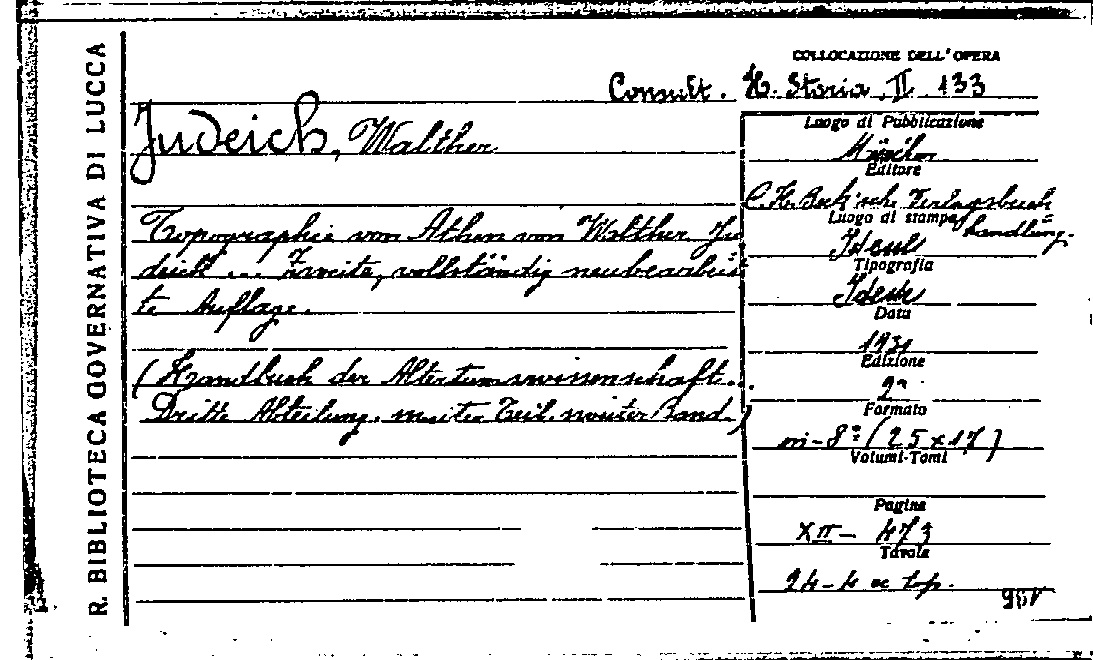 R. BIBLIOTECA GOVERNATIVA DI LUCCA
COLLOCAZIONE DELL'OPERA
Consult. H. Storia II 133
Judeich, Walther
Topographie von Athen von Walther Ju
deich ... Zweite, vollständig neubearbei
te Auflage.
(Handbuch der Altertumswissenschaft..
Dritte Abteilung. zweiter Teil. zweiter Band.)
Luogo di Pubblicazione
München
Editore
C. H. Beck'sch. Verlagsbuch=
handlung.
Luogo di stampa
Idem
Tipografia
Idem
Data
1931
Edizione
2a
Formato
in-8° (25x17)
Volumi-Tomi
Pagine
XII- 473
Tavole